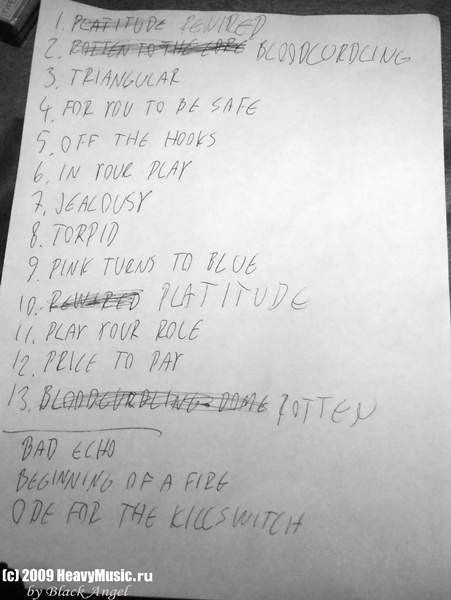 1. PLATITUDE REWIRED
2. ROTTEN TO THE CORE BLOODCURDLING
3. TRIANGULAR
4. FOR YOU TO BE SAFE
5. OFF THE HOOKS
6. IN YOUR PLAY
7. JEALOUSY
8. TORPID
9. PINK TURNS TO BLUE
10. REWIRED PLATITUDE
11. PLAY YOUR ROLE
12. PRICE TO PAY
13. BLOODCURDLING DOME ROTTEN
BAD ECHO
BEGINNING OF A FIRE
ODE FOR THE KILLSWITCH
(c) 2009 HeavyMusic.ru
by Black Angel